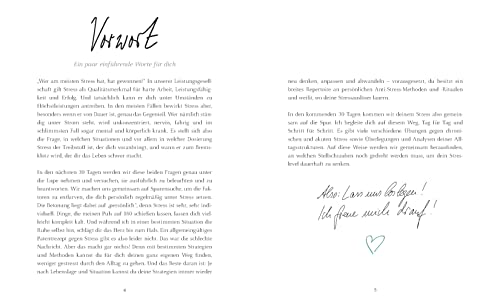 Vorwort
Ein paar einführende Worte für dich
„Wer am meisten Stress hat, hat gewonnen!“ In unserer Leistungsgesell-
schaft gilt Stress als Qualitätsmerkmal für harte Arbeit, Leistungsfähig-
keit und Erfolg. Und tatsächlich kann er dich unter Umständen zu
Höchstleistungen antreiben. In den meisten Fällen bewirkt Stress aber,
besonders wenn er von Dauer ist, genau das Gegenteil. Wer nämlich stän-
dig unter Strom steht, wird unkonzentriert, nervös, fahrig und im
schlimmsten Fall sogar mental und körperlich krank. Es stellt sich also
die Frage, in welchen Situationen und vor allem in welcher Dosierung
Stress der Treibstoff ist, der dich voranbringt, und wann er zum Brenn-
klotz wird, der dir das Leben schwer macht.
In den nächsten 30 Tagen werden wir diese beiden Fragen genau unter
die Lupe nehmen und versuchen, sie ausführlich zu beleuchten und zu
beantworten. Wir machen uns gemeinsam auf Spurensuche, um die Fak-
toren zu entlarven, die dich persönlich regelmäßig unter Stress setzen.
Die Betonung liegt dabei auf „persönlich“, denn Stress ist sehr, sehr indi-
viduell: Dinge, die meinen Puls auf 180 schießen lassen, lassen dich viel-
leicht komplett kalt. Und während ich in einer bestimmten Situation die
Ruhe selbst bin, schlägt dir das Herz bis zum Hals. Ein allgemeingültiges
Patentrezept gegen Stress gibt es also leider nicht. Das war die schlechte
Nachricht. Aber das macht gar nichts! Denn mit bestimmten Strategien
und Methoden kannst du für dich deinen ganz eigenen Weg finden,
weniger gestresst durch den Alltag zu gehen. Und das Beste daran ist: Je
nach Lebenslage und Situation kannst du deine Strategien immer wieder
4
neu denken, anpassen und abwandeln – vorausgesetzt, du besitzt ein
breites Repertoire an persönlichen Anti-Stress-Methoden und Ritualen
und weißt, wo deine Stressauslöser lauern.
In den kommenden 30 Tagen kommen wir deinem Stress also gemein-
sam auf die Spur. Ich begleite dich auf diesem Weg, Tag für Tag und
Schritt für Schritt. Es gibt viele verschiedene Übungen gegen chroni-
schen und akuten Stress sowie Überlegungen und Analysen deiner All-
tagsstrukturen. Auf diese Weise werden wir gemeinsam herausfinden,
an welchen Stellschrauben noch gedreht werden muss, um dein Stress-
level dauerhaft zu senken.
Also: Lass uns loslegen!
Ich freue mich drauf!
5